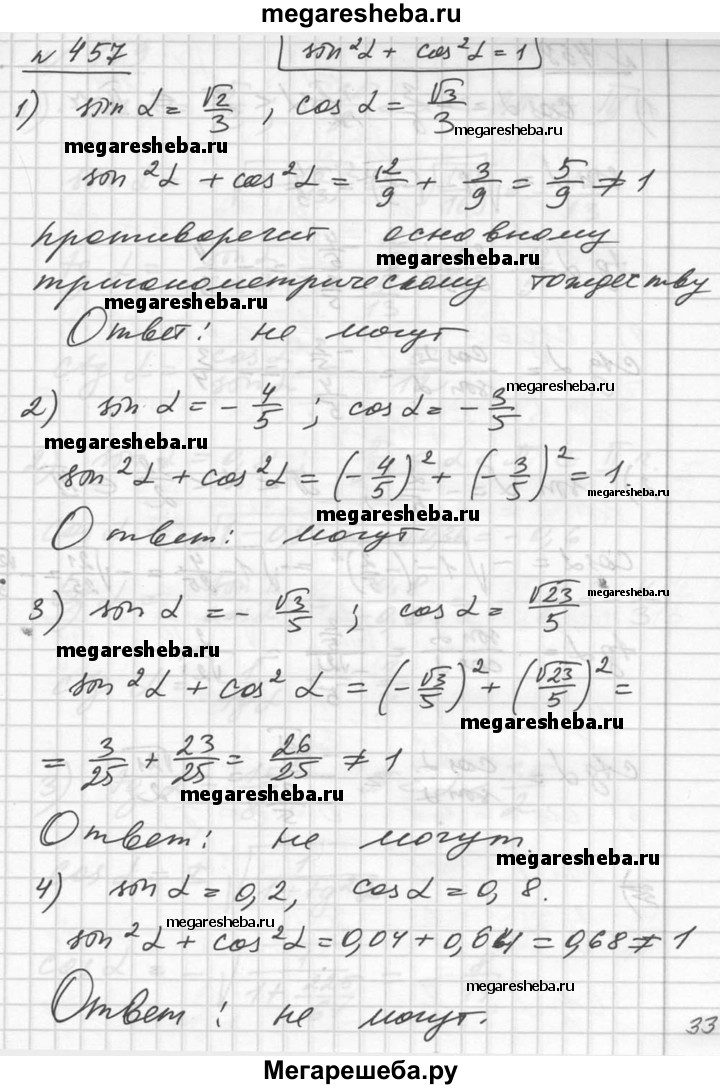 megaresheba.ru
№ 457 sin²α + cos²α = 1
1) sin α = √2/3 , cos α = √3/3
megaresheba.ru
megaresheba.ru
sin²α + cos²α = 2/9 + 3/9 = 5/9 ≠ 1
противоречит основному
megaresheba.ru
тригонометрическому тождеству
megaresheba.ru
Ответ: не могут
megaresheba.ru
2) sin α = - 4/5 ; cos α = - 3/5
megaresheba.ru
sin²α + cos²α = (- 4/5)² + (- 3/5)² = 1.
megaresheba.ru
megaresheba.ru
Ответ: могут
megaresheba.ru
3) sin α = - √3/5 ; cos α = √23/5
megaresheba.ru
sin²α + cos²α = (- √3/5)² + (√23/5)² =
megaresheba.ru
= 3/25 + 23/25 = 26/25 ≠ 1
megaresheba.ru
Ответ: не могут.
megaresheba.ru
4) sin α = 0,2, cos α = 0,8.
megaresheba.ru
sin²α + cos²α = 0,04 + 0,64 = 0,68 ≠ 1
megaresheba.ru
Ответ: не могут.
33
Мегарешеба.ру